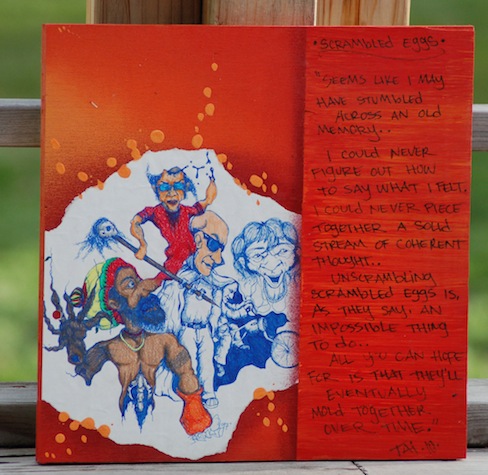 • SCRAMBLED EGGS •
"SEEMS LIKE I MAY
HAVE STUMBLED
ACROSS AN OLD
MEMORY..
I COULD NEVER
FIGURE OUT HOW
TO SAY WHAT I FELT.
I COULD NEVER PIECE
TOGETHER A SOLID
STREAM OF COHERENT
THOUGHT..
UNSCRAMBLING
SCRAMBLED EGGS IS,
AS THEY SAY, AN
IMPOSSIBLE THING
TO DO..
ALL YOU CAN HOPE
FOR IS THAT THEY'LL
EVENTUALLY
MOLD TOGETHER
OVER TIME."